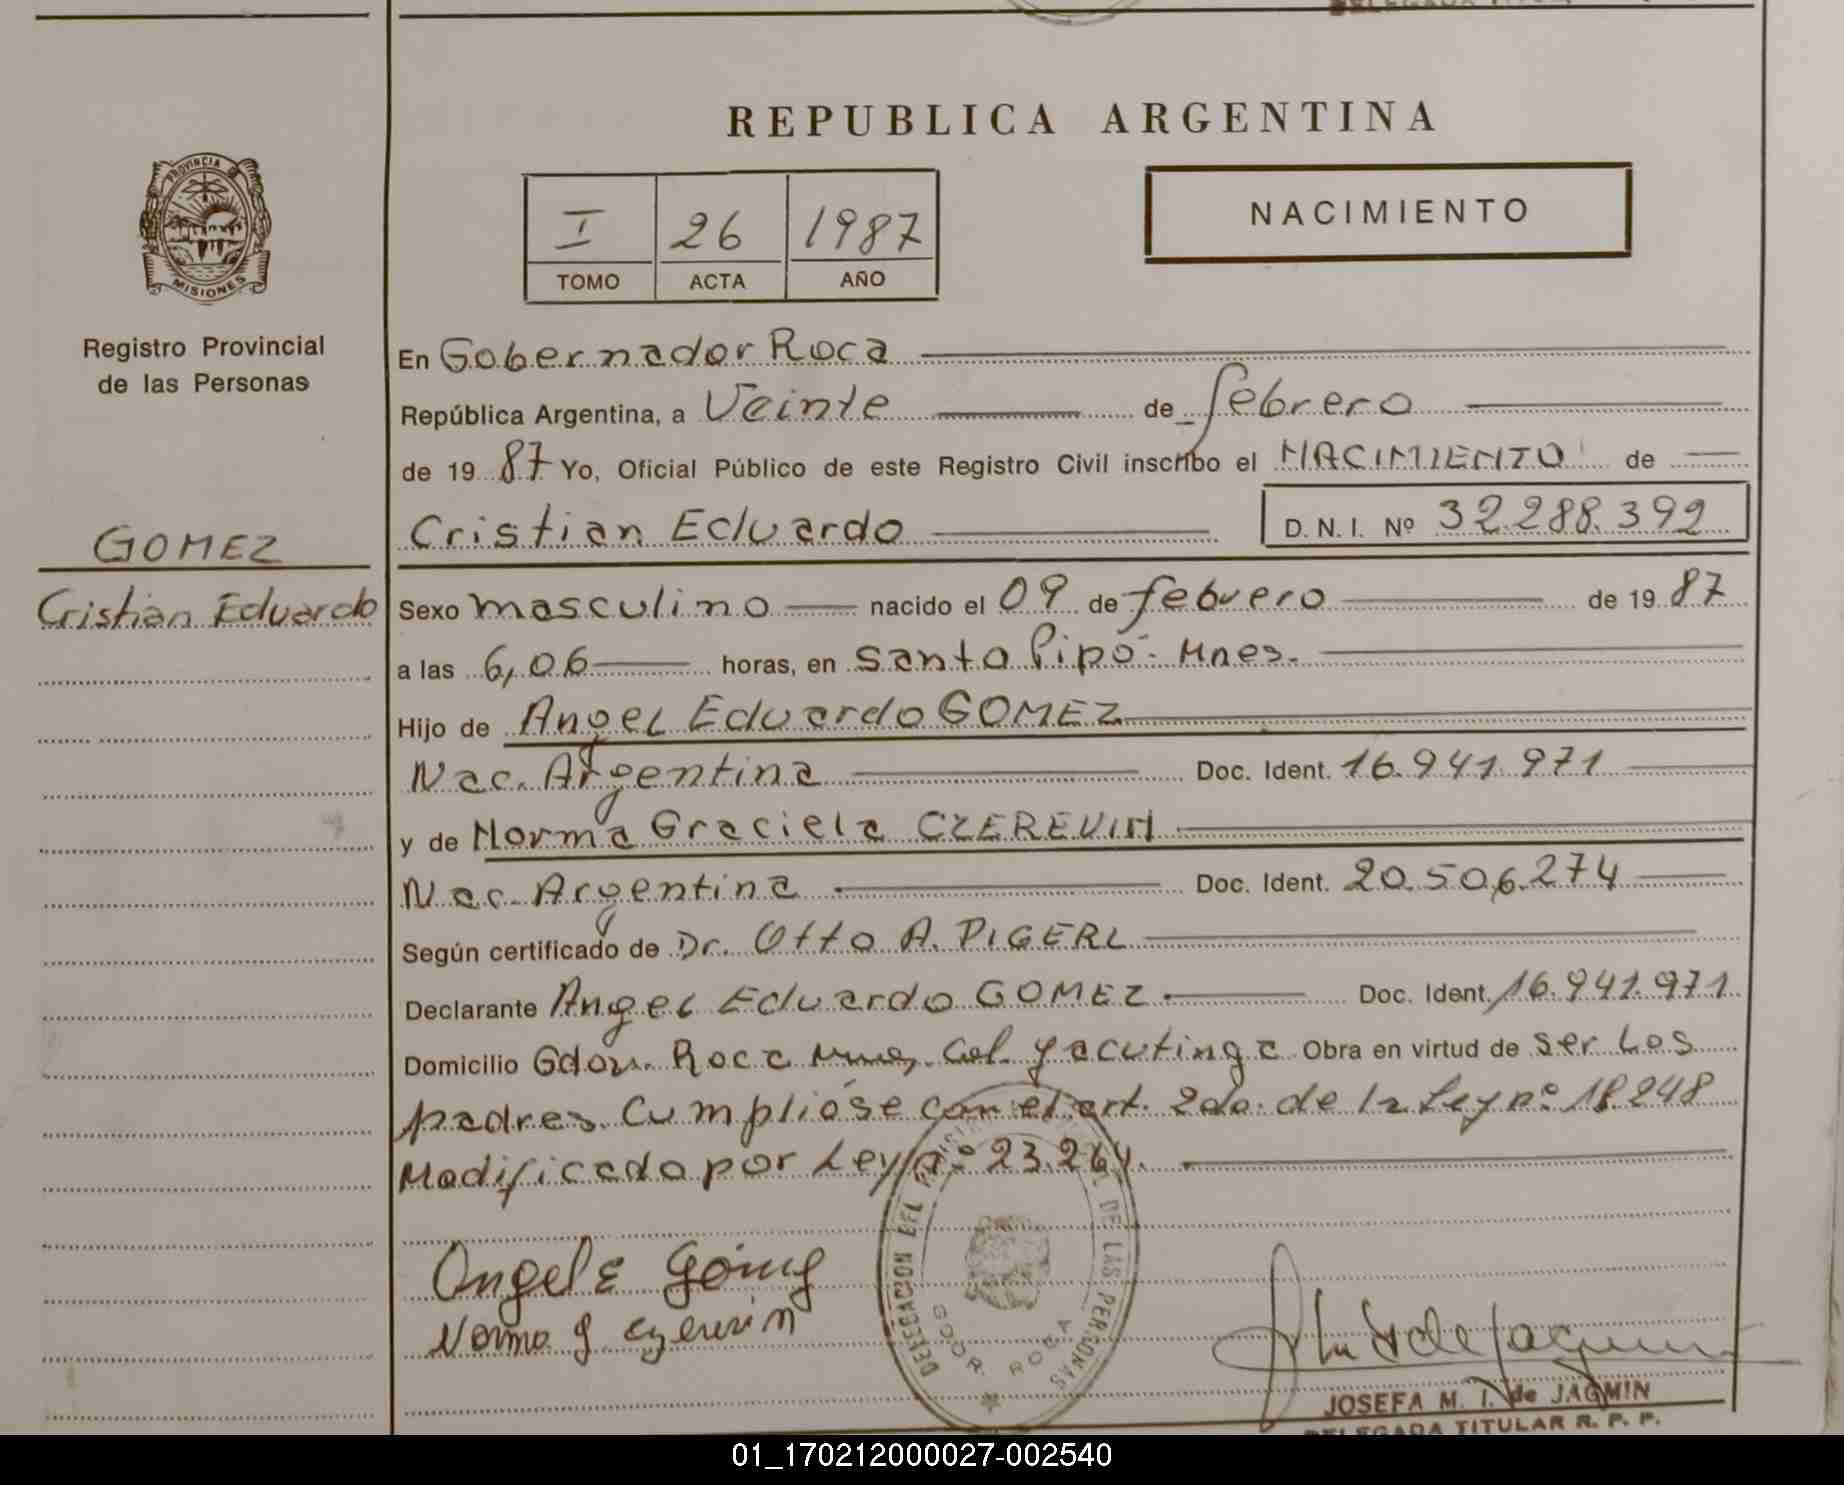 REPUBLICA ARGENTINA
PROVINCIA DE
MISIONES
Registro Provincial
de las Personas
I 26 1987
TOMO ACTA AÑO
NACIMIENTO
En Gobernador Roca
República Argentina, a Veinte de febrero
de 1987 Yo, Oficial Público de este Registro Civil inscribo el NACIMIENTO de
GOMEZ
Cristian Eduardo
Cristian Eduardo D.N.I. Nº 32.288.392
Sexo masculino nacido el 09 de febrero de 1987
a las 6,06 horas, en Santo Pipó - Mnes.
Hijo de Angel Eduardo GOMEZ
Nac. Argentina Doc. Ident. 16.941.971
y de Norma Graciela CZEREVIN
Nac. Argentina Doc. Ident. 20.506.274
Según certificado de Dr. Otto A. PIGERL
Declarante Angel Eduardo GOMEZ Doc. Ident. 16.941.971
Domicilio Gdor. Roca Mnes, Col. Yacutinga Obra en virtud de ser Los
padres. Cumplióse con el art. 2do. de la Ley nº 18.248
Modificado por Ley nº 23.264.
Angel E Gómez
Norma G Czerevin
DE LAS PERSONAS
GDOR. ROCA
JOSEFA M. I. de JAGMIN
DELEGADA TITULAR R. P. P.
01_170212000027-002540